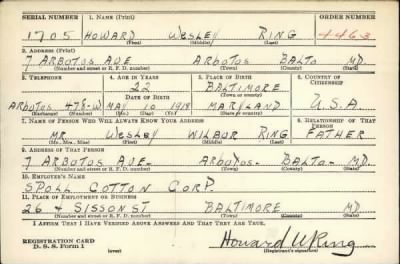 SERIAL NUMBER 1. NAME (Print) ORDER NUMBER
1705 HOWARD WESLEY RING 4463
(First) (Middle) (Last)
2. ADDRESS (Print)
7 ARBUTUS AVE ARBUTUS BALTO MD.
(Number and street or R. F. D. number) (Town) (County) (State)
3. TELEPHONE 4. AGE IN YEARS 5. PLACE OF BIRTH 6. COUNTRY OF CITIZENSHIP
22 BALTIMORE
DATE OF BIRTH (Town or county)
ARBUTUS 478-W MAY 10 1918 MARYLAND U.S.A.
(Exchange) (Number) (Mo.) (Day) (Yr.) (State or country)
7. NAME OF PERSON WHO WILL ALWAYS KNOW YOUR ADDRESS 8. RELATIONSHIP OF THAT PERSON
MR. WESLEY WILBUR RING FATHER
(Mr., Mrs., Miss) (First) (Middle) (Last)
9. ADDRESS OF THAT PERSON
7 ARBUTUS AVE- ARBUTUS- BALTO- MD
(Number and street or R. F. D. number) (Town) (County) (State)
10. EMPLOYER'S NAME
SPOLL COTTON CORP.
11. PLACE OF EMPLOYMENT OR BUSINESS
26 & SISSON ST BALTIMORE MD
(Number and street or R. F. D. number) (Town) (County) (State)
I AFFIRM THAT I HAVE VERIFIED ABOVE ANSWERS AND THAT THEY ARE TRUE.
REGISTRATION CARD
D. S. S. Form 1 (over) Howard W Ring
(Registrant's signature)